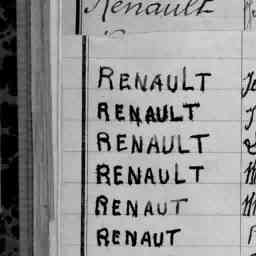 Renault
RENAULT
RENAULT
RENAULT
RENAULT
RENAUT
RENAUT